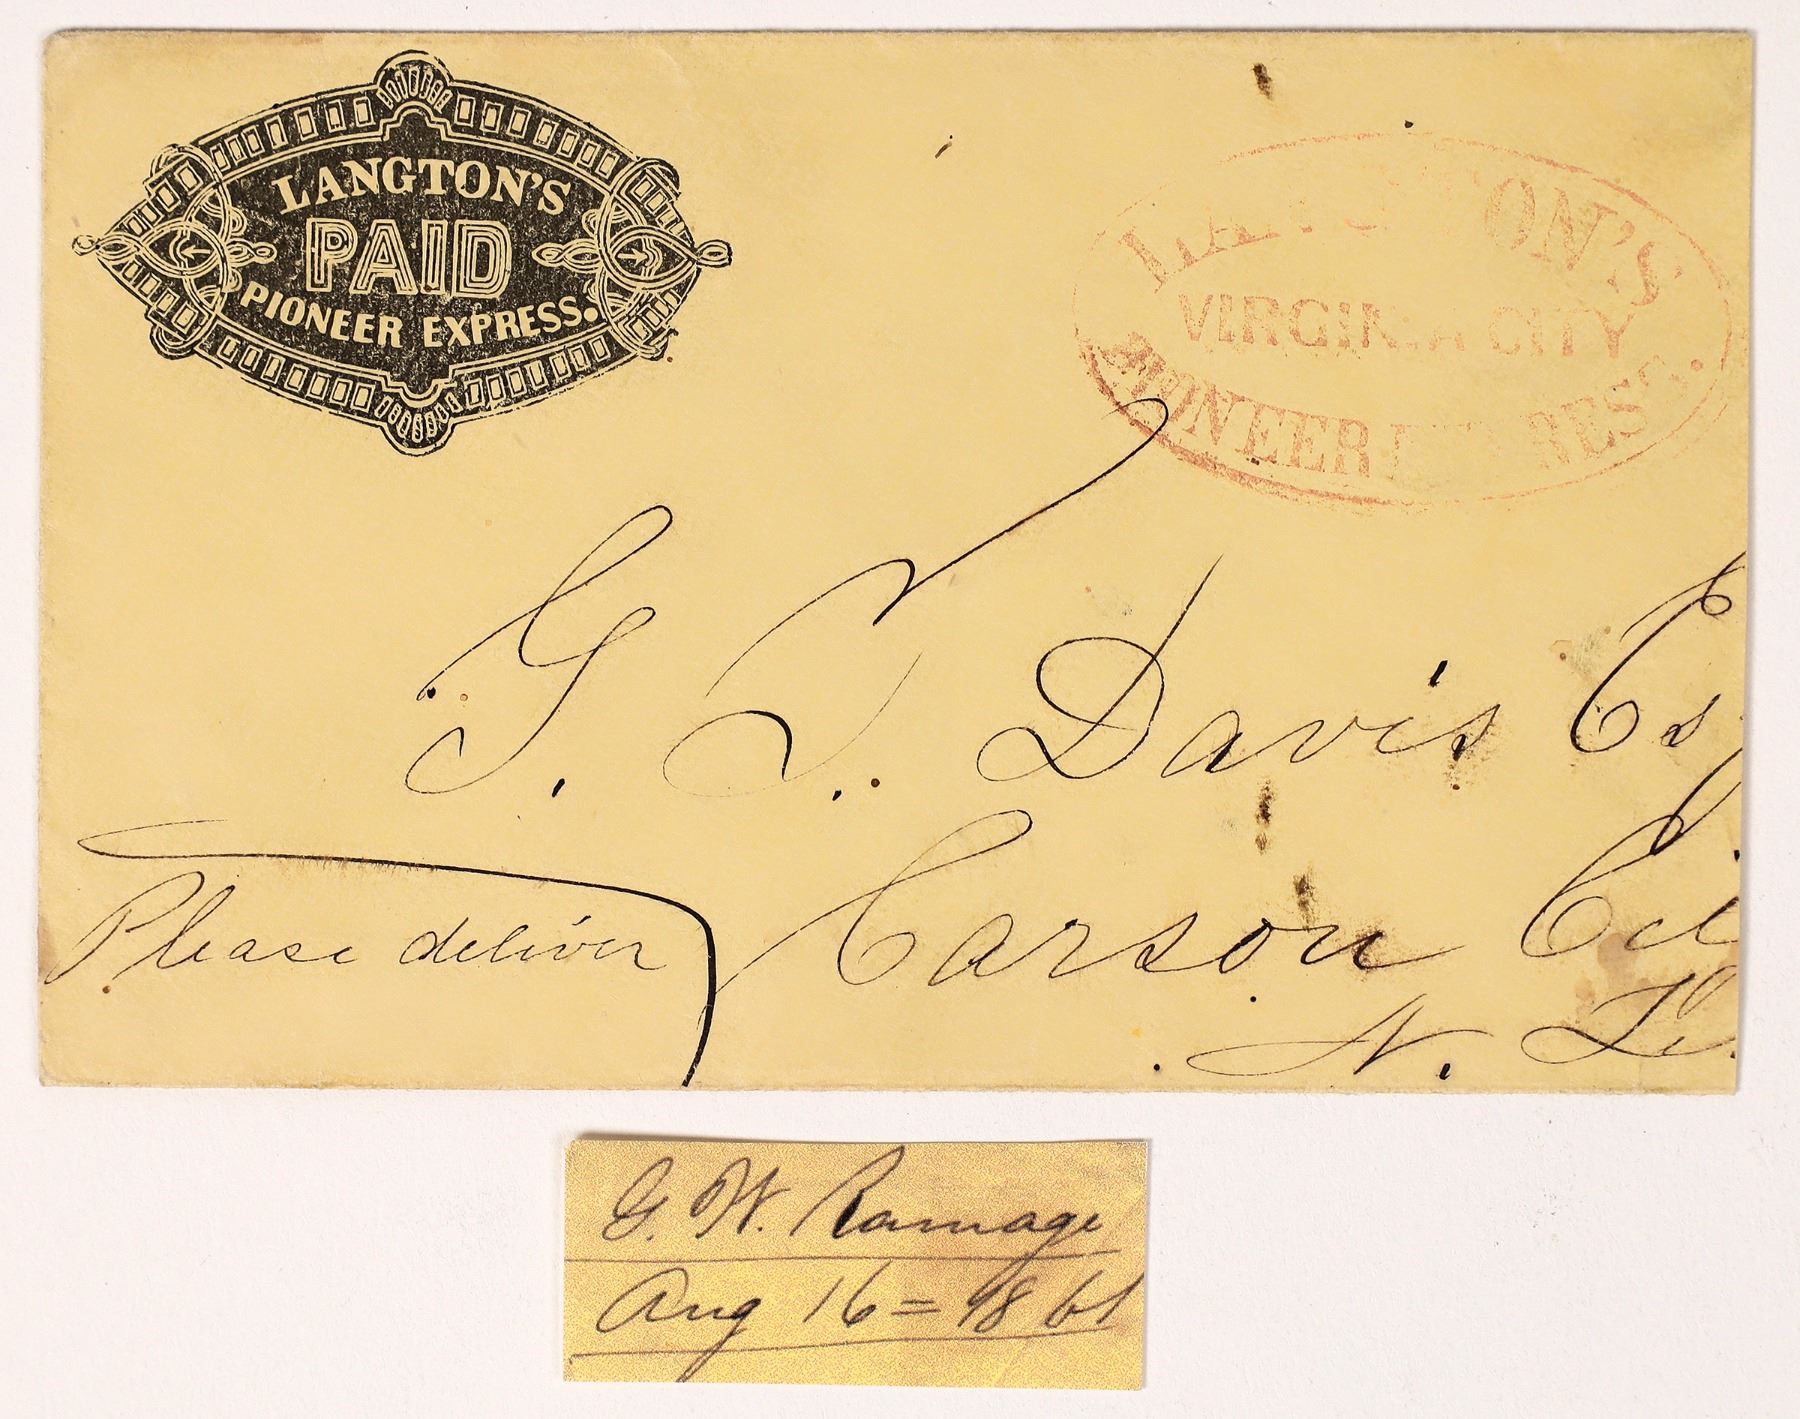 LANGTON'S
PAID
PIONEER EXPRESS.
LANGTON'S
VIRGINIA CITY
PIONEER EXPRESS.
G. T. Davis Esq
Carson Cit
N. Te
Please deliver
G. W. Ramage
Aug 16 = 1861